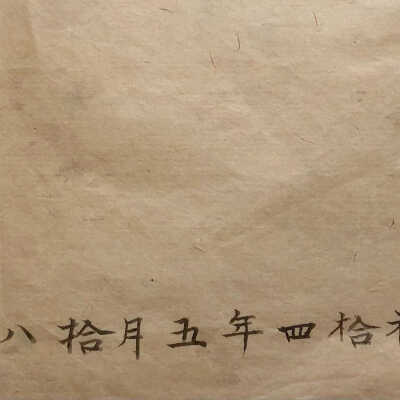 拾四年五月拾八